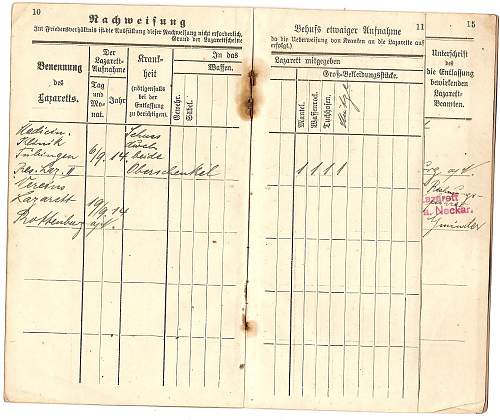 10
Nachweisung
(Im Friedensverhältnis ist die Ausfüllung dieser Nachweisung nicht erforderlich,
Grund der Lazarettscheine
Benennung
des
Lazaretts.
Der
Lazarett-
Aufnahme
Tag
und
Mo-
nat.
Jahr
Krank-
heit
(nötigenfalls
bei der
Entlassung
zu berichtigen).
In das
Waffen.
Gewehr.
Säbel.
Medizin.
Klinik
Tübingen
Res. Laz. II
6/9. 14.
Schuss
durch
beide
Oberschenkel
Vereins
Lazarett
Rottenburg a/N.
19/9. 14
Behufs etwaiger Aufnahme
11
da die Ueberweisung von Kranken an die Lazarette auf
erfolgt.)
Lazarett mitgegeben
Groß-Bekleidungsstücke.
Mantel.
Waffenrock.
Tuchhosen.
Mütze
1 1 1 1
15
Unterschrift
des
die Entlassung
bewirkenden
Lazarett-
Beamten.
a/N.
Lazarett
a. Neckar.